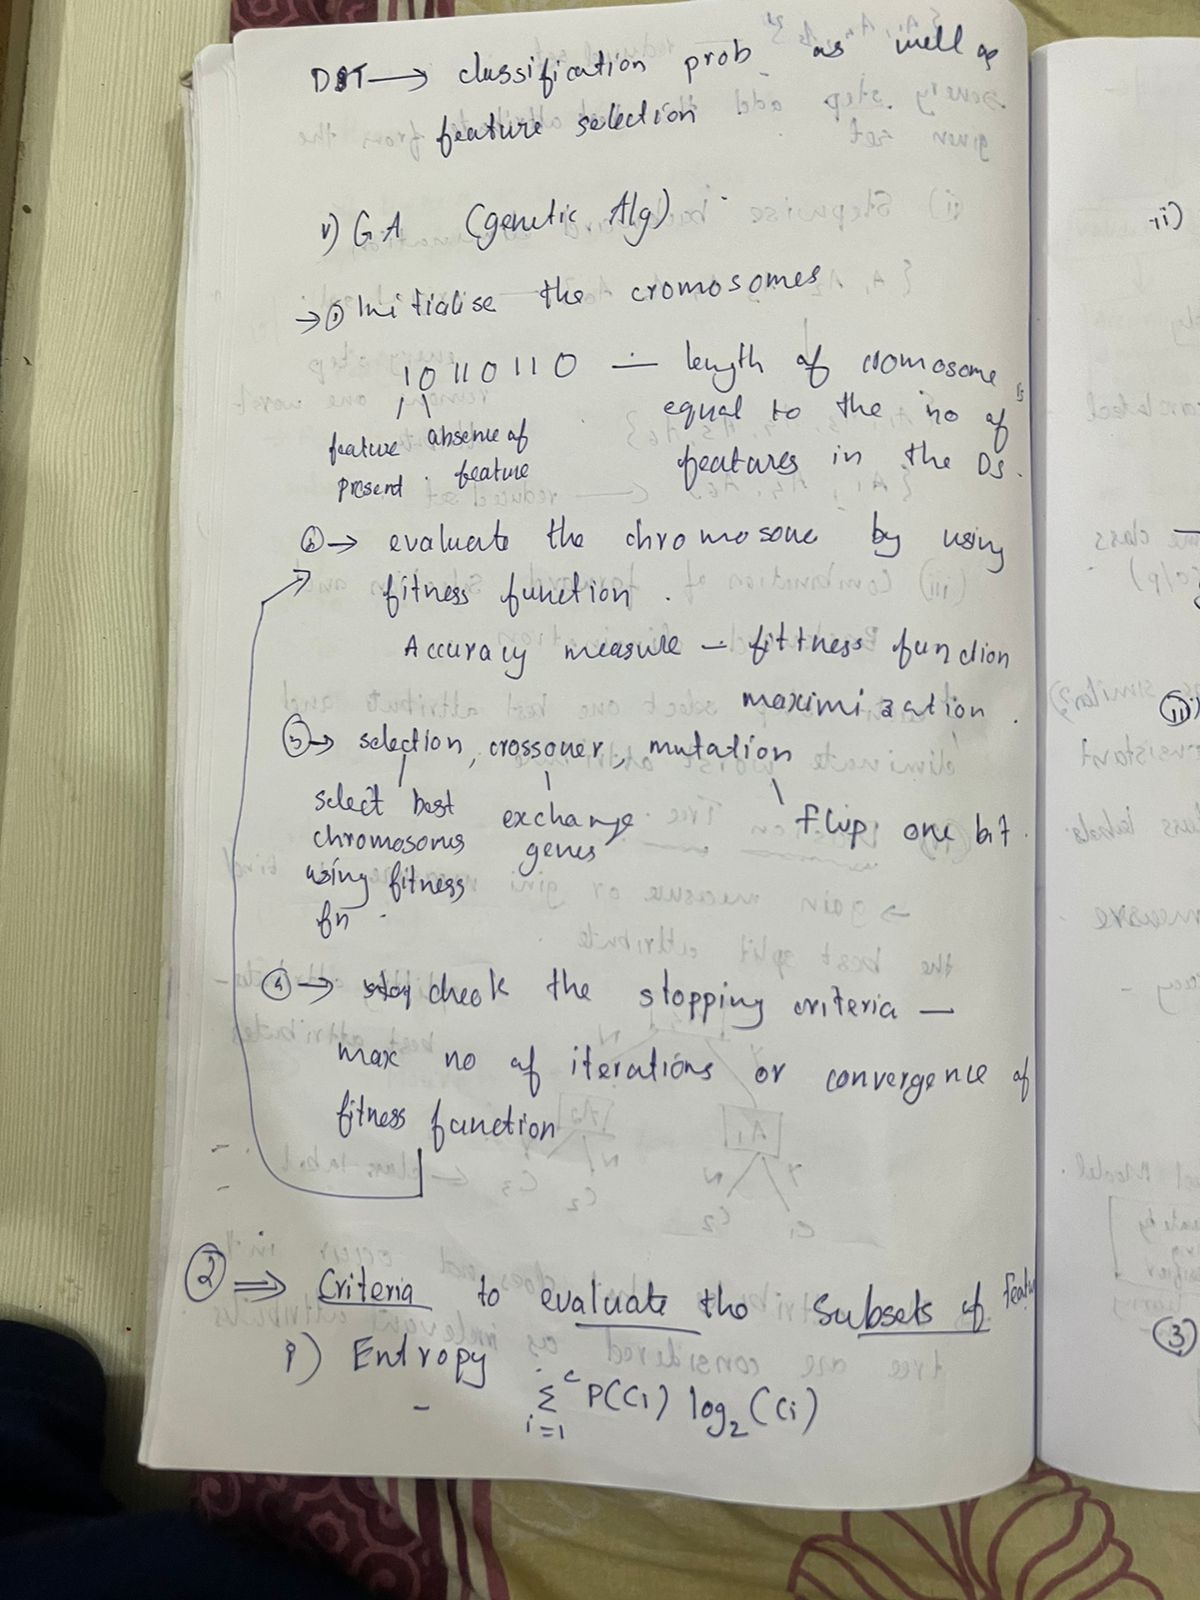 DST → classification prob as well as
feature selection
v) GA (genetic Alg)
→ ① Initialise the cromosomes
10110110 — length of cromosome is
equal to the no of
features in the DS.
feature present
absence of feature
② → evaluate the chromosone by using
fitness function.
Accuracy measure – fittness function
maximization.
③ → selection, crossover, mutation
select best
chromosomes
using fitness
fn.
exchange
genes
flip one bit.
④ → check the stopping criteria —
max no of iterations or convergence of
fitness function
② ⇒ Criteria to evaluate the Subsets of
i) Entropy
- Σ i=1 c P(Ci) log2 (Ci)